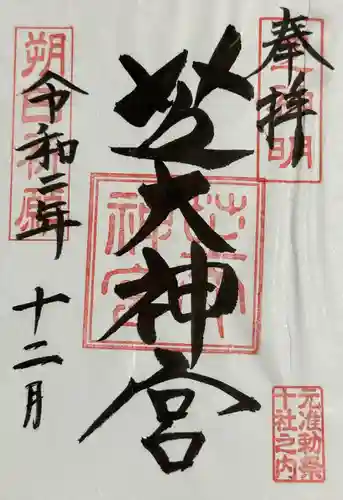 奉拝
芝大神宮
令和二年
十二月
朔日祈願
元准勅祭
十社之内